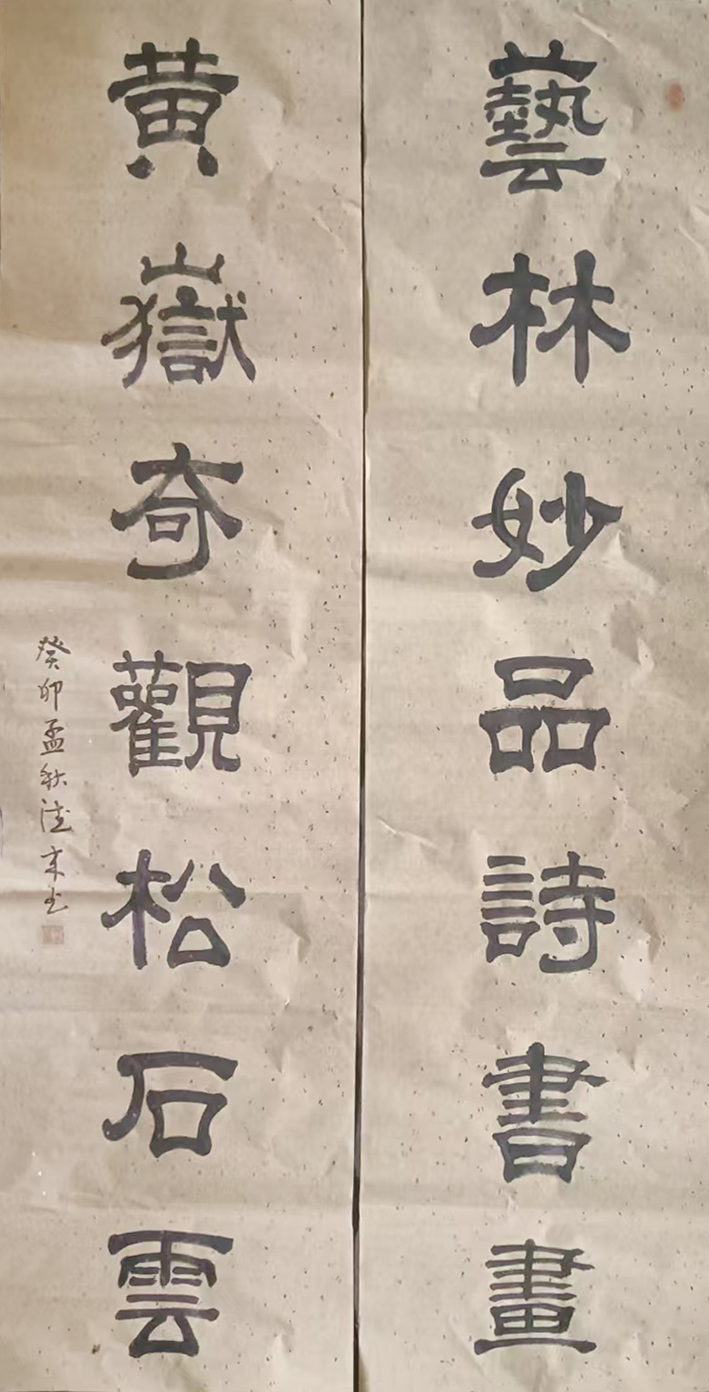 藝林妙品詩書畫
黃嶽奇觀松石雲
癸卯孟秋德來書